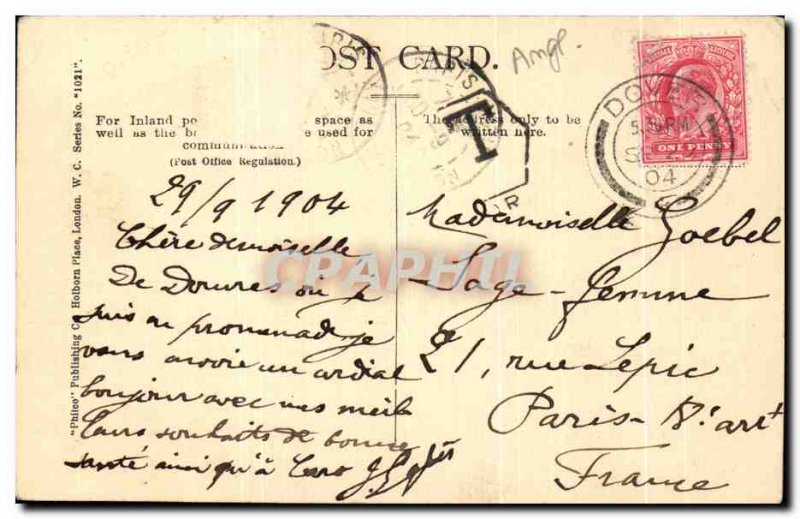 POST CARD.
Angl.
For Inland po space as
well as the b e used for
communication
(Post Office Regulation.)
The address only to be
written here.
"Philco" Publishing Co., Holborn Place, London. W. C. Series No. "1021".
PARIS
T
DOVER
5.30 PM
SP 29
04
ONE PENNY
29/9 1904
Chère demoiselle
De Douvres où je
suis en promenade je
vous envoie un cordial
bonjour avec mes meil
leurs souhaits de bonne
santé ainsi qu'à
Mademoiselle Goebel
Sage-femme
21, rue Lepic
Paris-
France
CPARHI